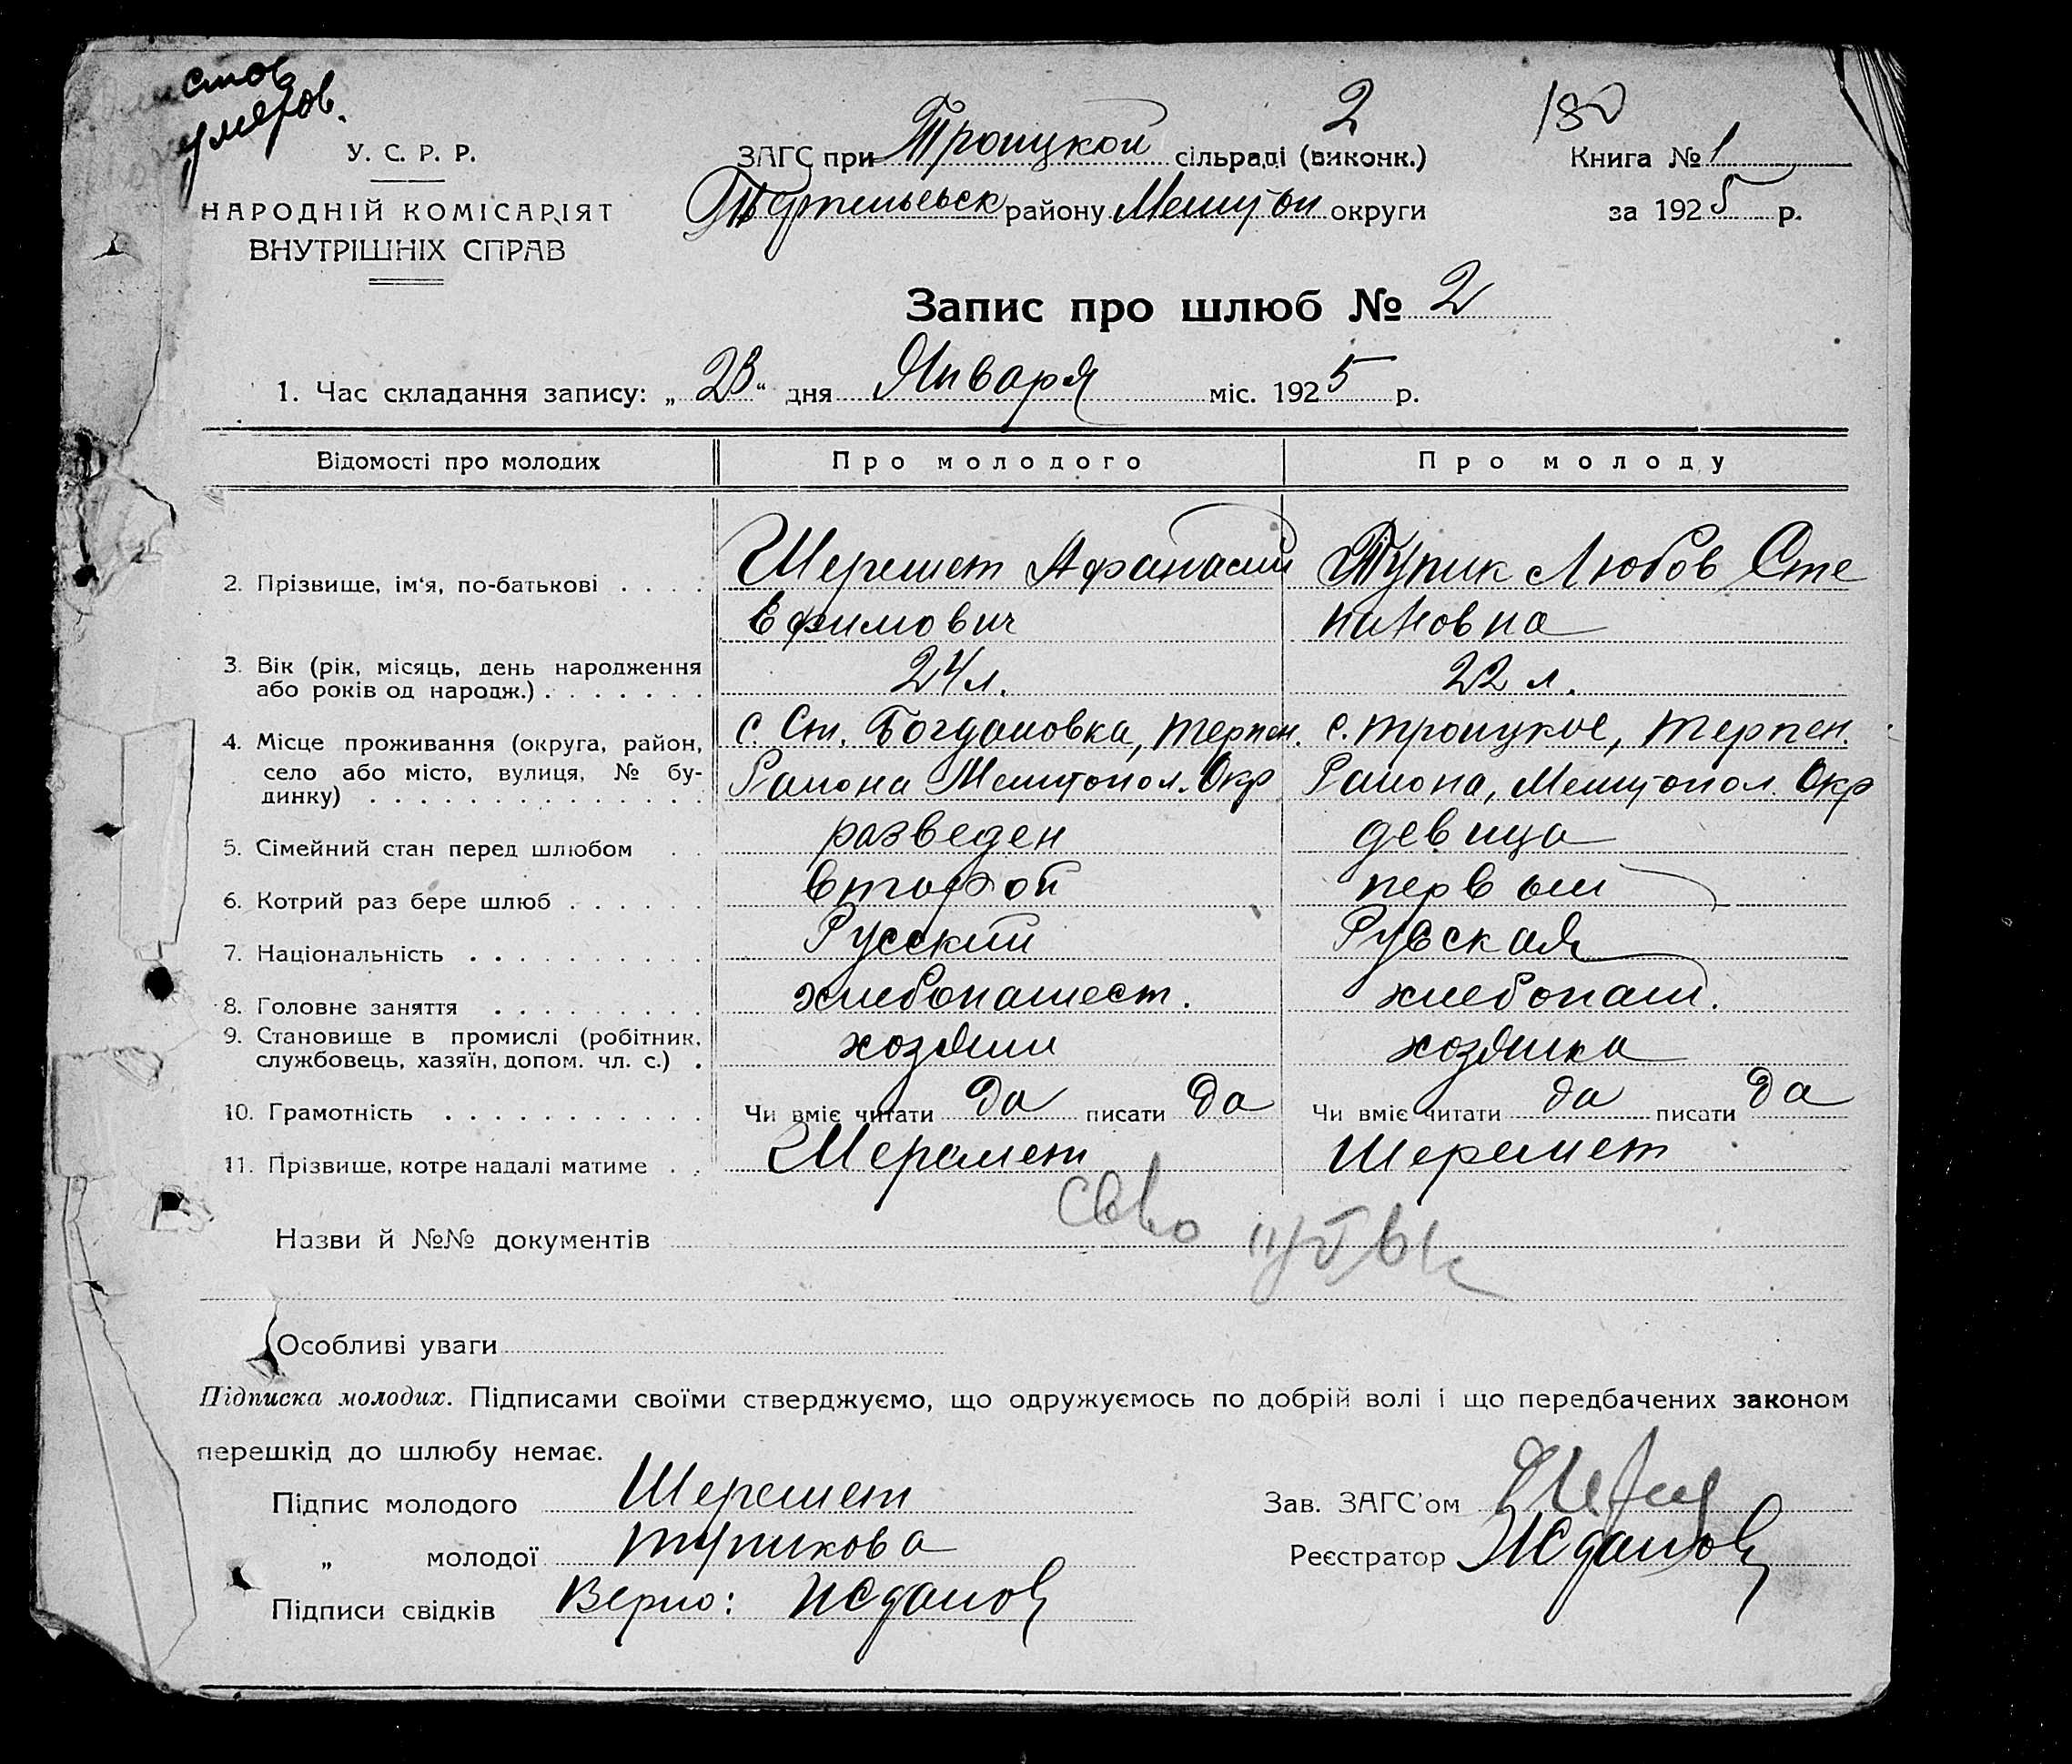 У. С. Р. Р.
НАРОДНІЙ КОМІСАРІЯТ
ВНУТРІШНІХ СПРАВ
2
180
ЗАГС при Троицкой сільраді (виконк.)
Книга № 1
району Мелитоп округи
за 1925 р.
Запис про шлюб № 2
1. Час складання запису: „23“ дня Января міс. 1925 р.
Відомості про молодих Про молодого Про молоду
2. Прізвище, ім‘я, по-батькові . . . . Шеремет Афанасий Тупик Любов Сте
Ефимович пановна
3. Вік (рік, місяць, день народження
або років од народж.) . . . . . . . 24 л. 22 л.
4. Місце проживання (округа, район, с. Ст. Богдановка, Терпен. с. Троицкое, Терпен.
село або місто, вулиця, № бу- Района Мелитопол. Окр Района, Мелитопол. Окр
динку) . . . . . . . . . . . . . . .
5. Сімейний стан перед шлюбом . . разведен девица
6. Котрий раз бере шлюб . . . . . . второй первый
7. Національність . . . . . . . . . . Русский Русская
8. Головне заняття . . . . . . . . . хлебопашест. хлебопаш.
9. Становище в промислі (робітник,
службовець, хазяїн, допом. чл. с.) . хозяин хозяйка
10. Грамотність . . . . . . . . . . . Чи вміє читати да писати да Чи вміє читати да писати да
11. Прізвище, котре надалі матиме . . Шеремет Шеремет
Назви й №№ документів
Особливі уваги
Підписка молодих. Підписами своїми стверджуємо, що одружуємось по добрій волі і що передбачених законом
перешкід до шлюбу немає.
Підпис молодого Шеремет
Зав. ЗАГС’ом
„ молодої Тупикова
Реєстратор Жданов
Підписи свідків Верно: Жданов